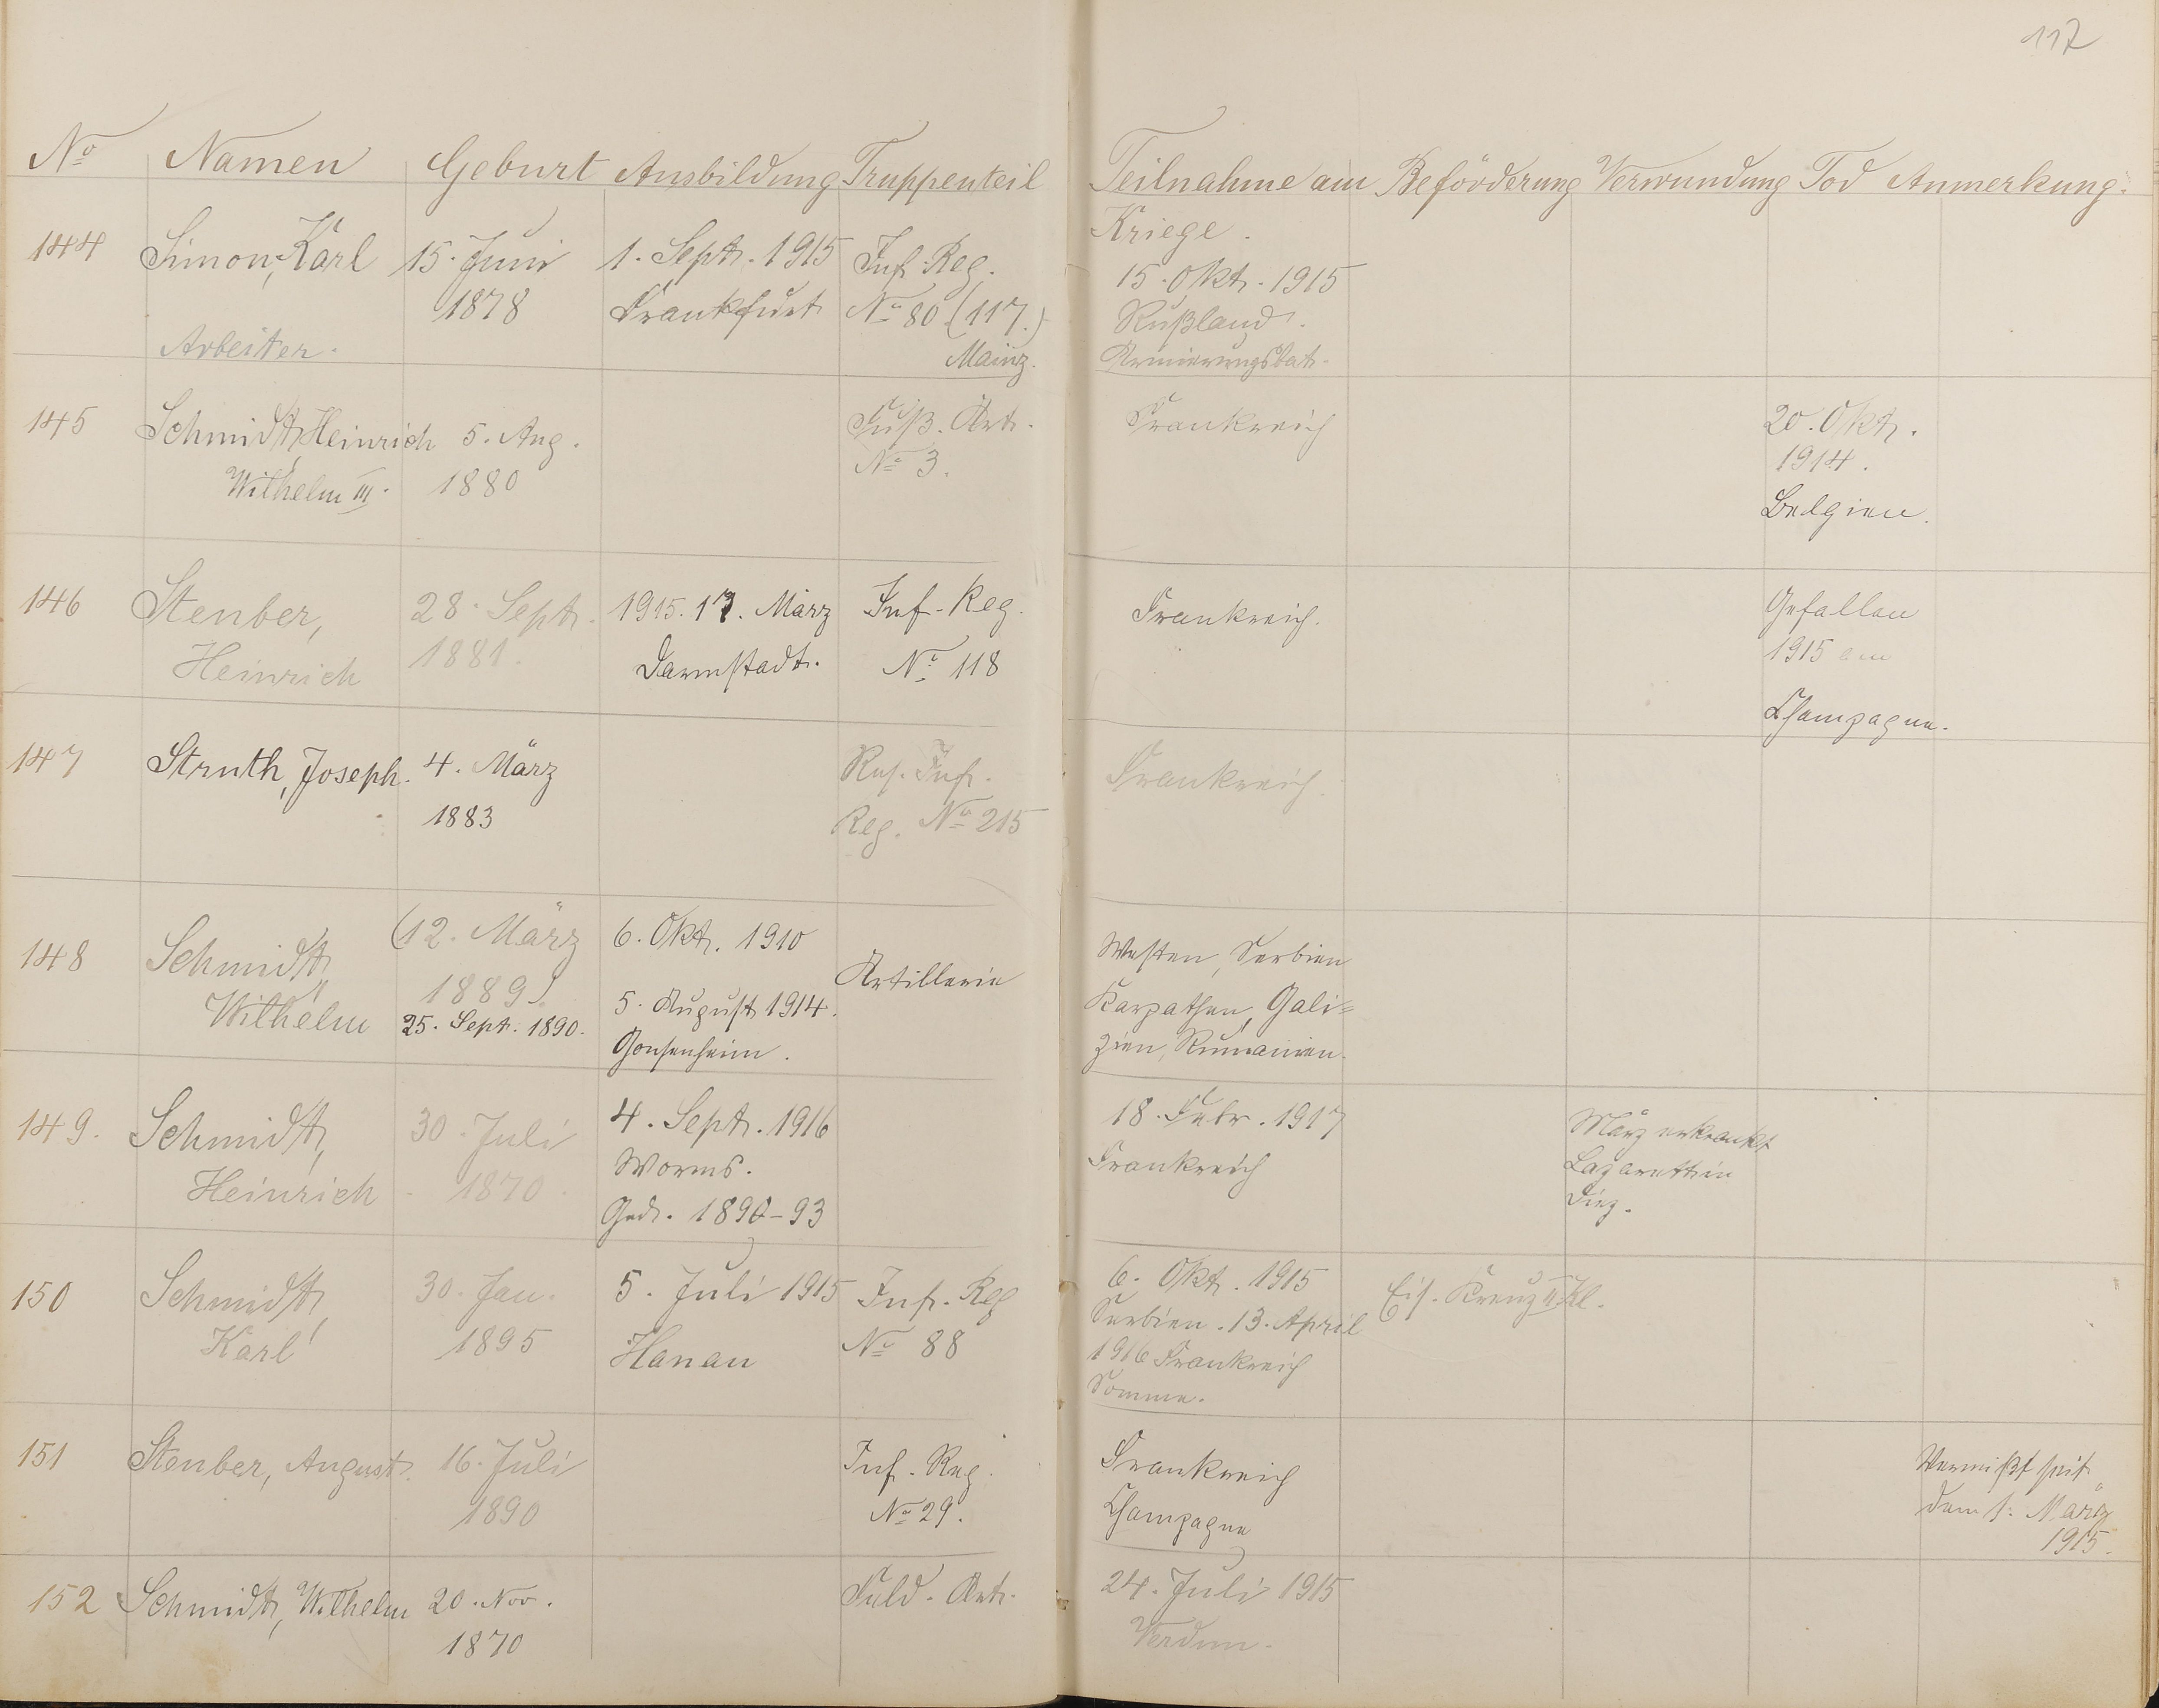 117
No Namen Geburt Ausbildung Truppenteil Teilnahme am Beförderung Verwundung Tod Anmerkung.
Kriege.
144 Simon, Karl 15. Juni 1. Sept. 1915 Inf. Reg. 15. Okt. 1915
1878 Frankfurt No 80 (117.) Rußland.
Arbeiter. Mainz. Armierungsbat.
145 Schmidt, Heinrich 5. Aug. Fuß. Art. Frankreich 20. Okt.
Wilhelm III. 1880 No 3. 1914.
Belgien.
146 Steuber, 28. Sept. 1915. 17. März Inf. Reg. Frankreich. Gefallen
Heinrich 1881. Darmstadt. No 118 1915
Champagne.
147 Struth, Joseph. 4. März Res. Inf. Frankreich.
1883 Reg. No 215
148 Schmidt, (12. März 6. Okt. 1910 Artillerie Westen, Serbien
Wilhelm 1889). 5. August 1914. Karpathen, Gali=
25. Sept. 1890. Gonsenheim. zien, Rumänien.
149. Schmidt, 30. Juli 4. Sept. 1916 18. Febr. 1917 März erkrankt
Heinrich 1870. Worms. Frankreich Lazarett in
Ged. 1890-93 Diez.
150 Schmidt, 30. Jan. 5. Juli 1915 Inf. Reg 6. Okt. 1915 Eis. Kreuz II Kl.
Karl 1895 Hanau No 88 Serbien. 13. April
1916 Frankreich
Somme.
151 Steuber, August. 16. Juli Inf. Reg. Frankreich Vermißt seit
1890 No 29. Champagne dem 1. März
1915.
152 Schmidt, Wilhelm 20. Nov. Feld. Art. 24. Juli 1915
1870 Verdun.